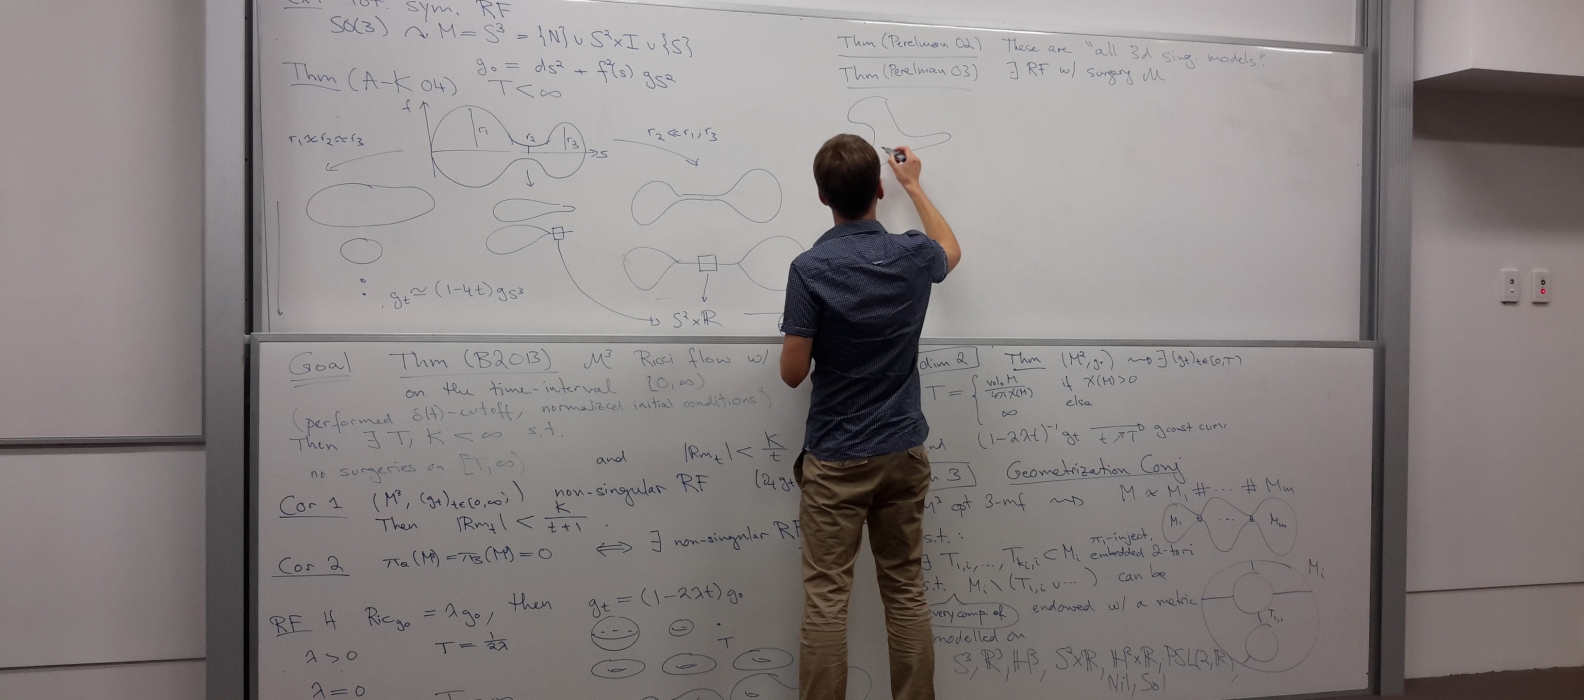 Ex: rot. sym. RF
SO(3) ↷ M = S³ = {N} ∪ S²×I ∪ {S}
g₀ = ds² + f²(s) g_S²
Thm (A-K 04) T < ∞
f
r₁ r₂ r₃ s
r₁ ≈ r₂ ≈ r₃
r₂ ≪ r₁, r₃
g_t ≃ (1-4t) g_S³
S²×ℝ
Thm (Perelman 02) These are "all 3d sing. models"
Thm (Perelman 03) ∃ RF w/ surgery M
Goal Thm (B2013) M³ Ricci flow w/
on the time-interval [0,∞)
(performed δ(t)-cutoff, normalized initial conditions)
Then ∃ T, K < ∞ s.t.
no surgeries on [T,∞) and |Rm_t| < K/t
Cor 1 (M³, (g_t)_{t∈[0,∞)}) non-singular RF
Then |Rm_t| < K/(t+1).
Cor 2 π₂(M) = π₃(M) = 0 ⟺ ∃ non-singular RF
RF If Ric_{g₀} = λg₀, then g_t = (1-2λt) g₀
λ > 0 T = 1/2λ T
λ = 0
dim 2 Thm (M², g₀) ⇝ ∃ (g_t)_{t∈[0,T)}
T = { vol₀ M / 4πχ(M) if χ(M) > 0
∞ else
(1-2λt)⁻¹ g_t → t↗T g const curv
3 Geometrization Conj
cpt 3-mf ⇝ M ≈ M₁ # ... # M_m
M₁ ... M_m
s.t.:
∃ T_{1,i}, ..., T_{k_i,i} ⊂ M_i π₁-inject. embedded 2-tori
s.t. M_i \ (T_{1,i} ∪ ...) can be
every comp. of endowed w/ a metric
modelled on
S³, ℝ³, H³, S²×ℝ, H²×ℝ, PSL(2,ℝ),
Nil, Sol
M_i
T_{1,i}